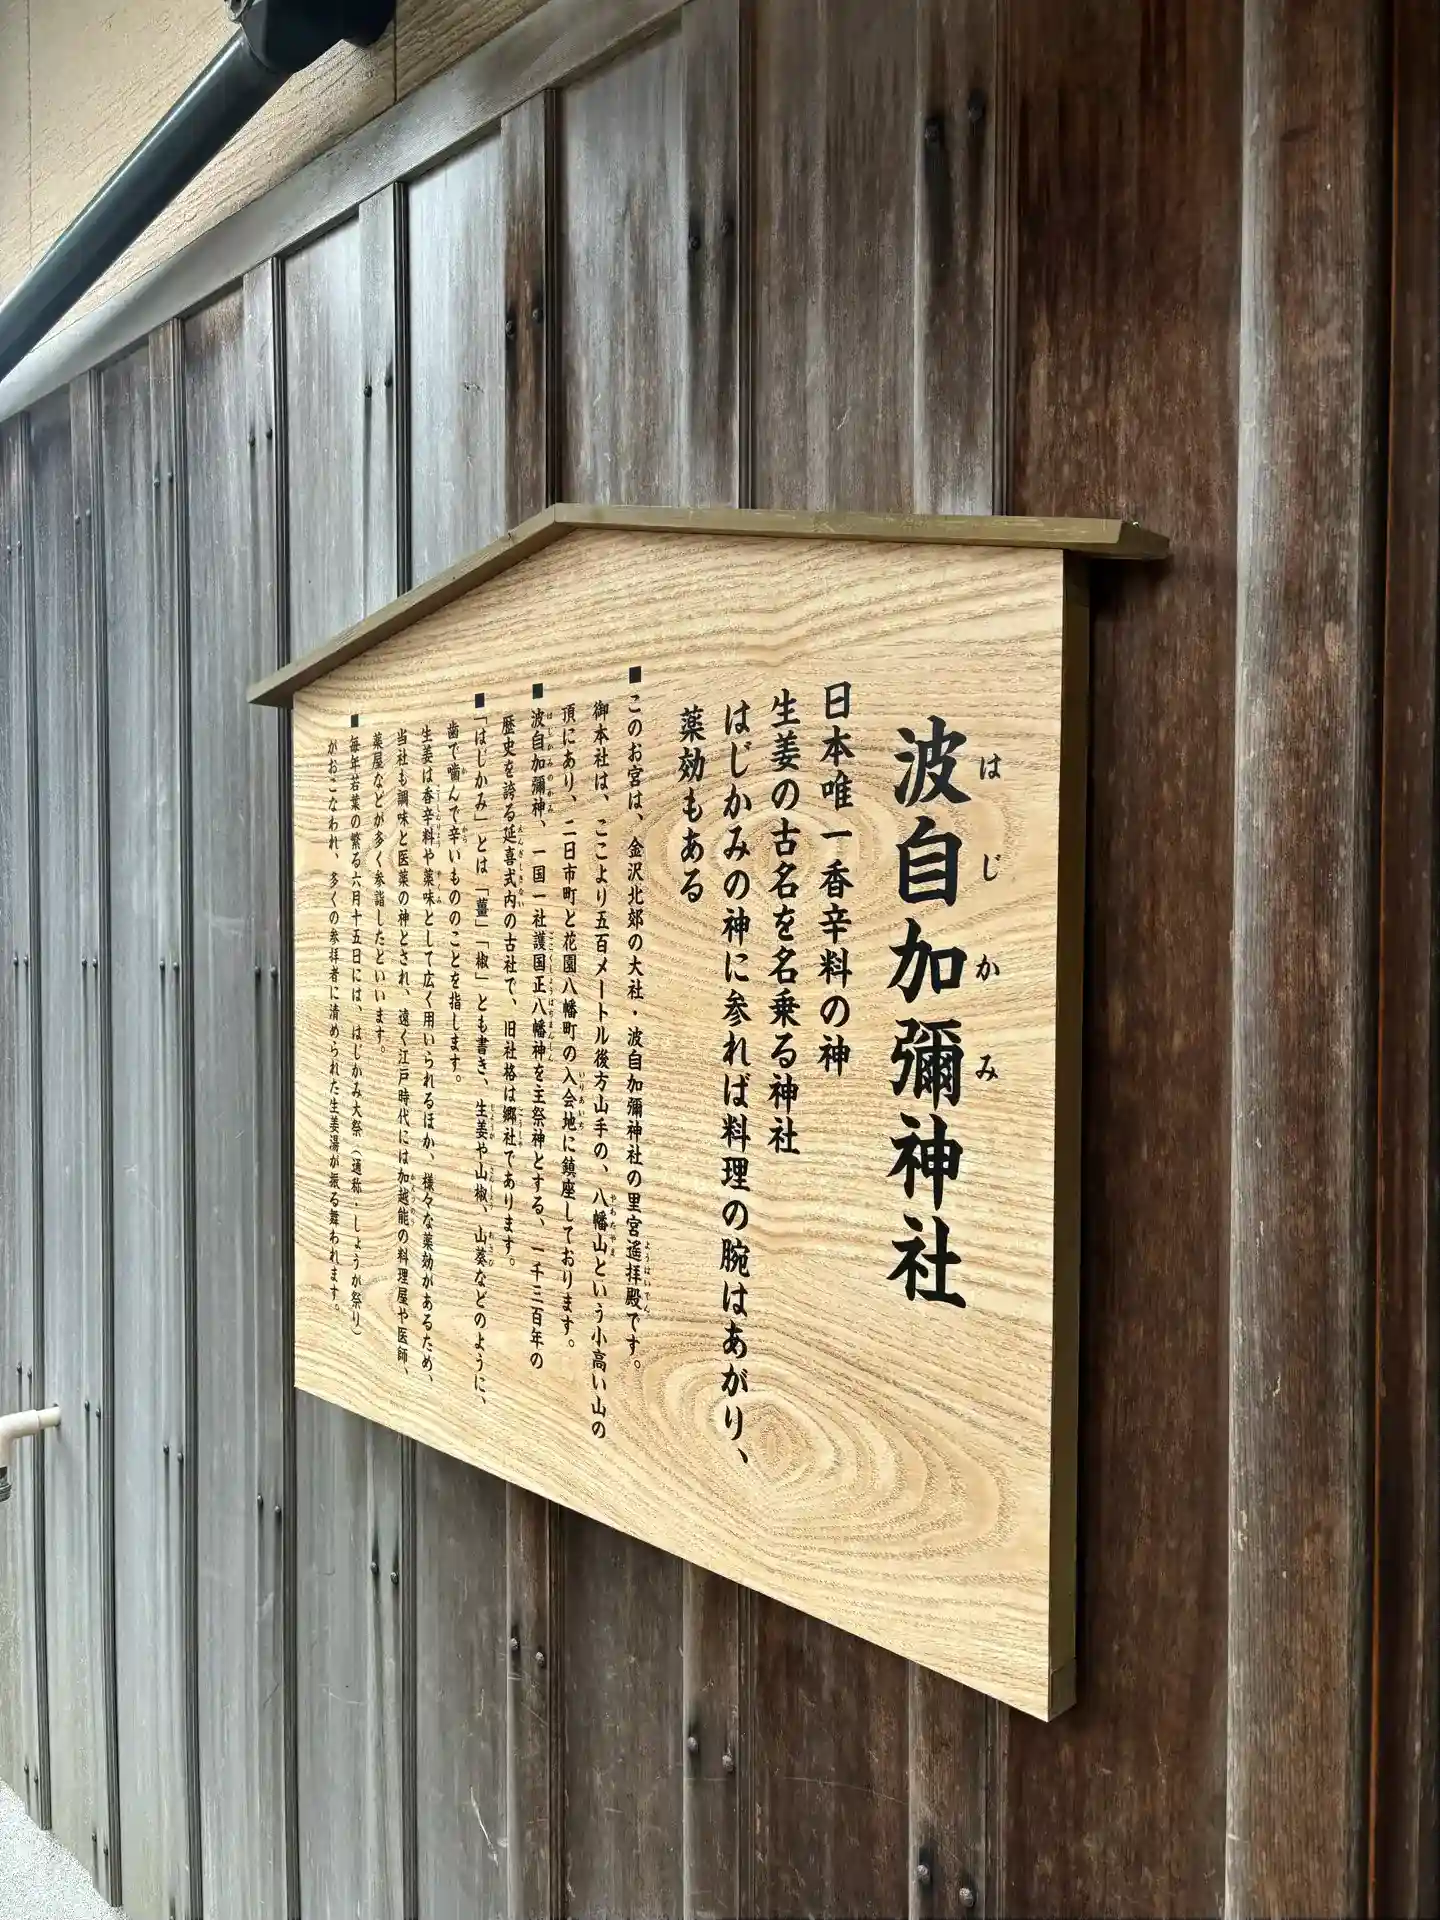 波自加彌神社
はじかみ
日本唯一香辛料の神
生姜の古名を名乗る神社
はじかみの神に参れば料理の腕はあがり、
薬効もある
■このお宮は、金沢北郊の大社・波自加彌神社の里宮遙拝殿です。
ようはいでん
御本社は、ここより五百メートル後方山手の、八幡山という小高い山の
やわたやま
頂にあり、二日市町と花園八幡町の入会地に鎮座しております。
いりあいち
■波自加彌神、一国一社護国正八幡神を主祭神とする、一千三百年の
はじかみのかみ
ごこくしょうはちまんしん
歴史を誇る延喜式内の古社で、旧社格は郷社であります。
えんぎしきない
ごうしゃ
■「はじかみ」とは「薑」「椒」とも書き、生姜や山椒、山葵などのように、
しょうが
さんしょう
わさび
歯で噛んで辛いもののことを指します。
か
から
生姜は香辛料や薬味として広く用いられるほか、様々な薬効があるため、
こうしんりょう
やくみ
当社も調味と医薬の神とされ、遠く江戸時代には加越能の料理屋や医師、
かえつのう
薬屋などが多く参詣したといいます。
■毎年若葉の繁る六月十五日には、はじかみ大祭（通称・しょうが祭り）
がおこなわれ、多くの参拝者に清められた生姜湯が振る舞われます。